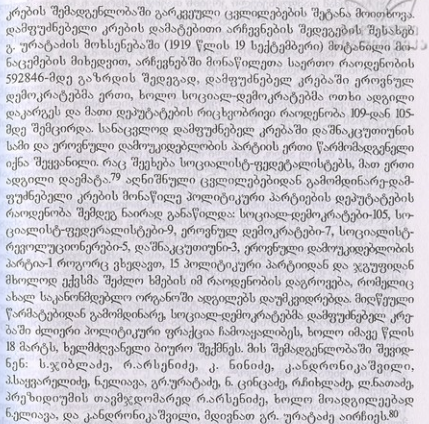 კრების შემადგენლობაში გარკვეული ცვლილებების შეტანა მოითხოვა.
დამფუძნებელი კრების დამატებითი არჩევნების შედეგების შესახებ
გ. ურატაძის მოხსენებაში (1919 წლის 19 სექტემბერი) მოტანილი მო-
ნაცემების მიხედვით, არჩევნებში მონაწილეთა საერთო რაოდენობის
592846-მდე გაზრდის შედეგად, დამფუძნებელ კრებაში ეროვნულ
დემოკრატებმა ერთი, ხოლო სოციალ-დემოკრატებმა ოთხი ადგილი
დაკარგეს და მათი დეპუტატების რიცხობრივი რაოდენობა 109-დან 105-
მდე შემცირდა. სანაცვლოდ დამფუძნებელ კრებაში დაშნაკცუთიუნის
სამი და ეროვნული დამოუკიდებლობის პარტიის ერთი წარმომადგენელი
იქნა შეყვანილი. რაც შეეხება სოციალისტ-ფედერალისტებს, მათ ერთი
ადგილი დაემატა.79 აღნიშნული ცვლილებებიდან გამომდინარე-დამ-
ფუძნებელი კრების მონაწილე პოლიტიკური პარტიების დეპუტატების
რაოდენობა შემდეგ ნაირად განაწილდა: სოციალ-დემოკრატები-105, სო-
ციალისტ-ფედერალისტები-9, ეროვნულ დემოკრატები-7, სოციალისტ-
რევოლუციონერები-5, დაშნაკცუთიუნი-3, ეროვნული დამოუკიდებლობის
პარტია-1 როგორც ვხედავთ, 15 პოლიტიკური პარტიიდან და ჯგუფიდან
მხოლოდ ექვსმა შეძლო ხმების იმ რაოდენობის დაგროვება, რომელიც
ახალ საკანონმდებლო ორგანოში ადგილებს დაუმკვიდრებდა. მიღწეული
წარმატებიდან გამომდინარე, სოციალ-დემოკრატებმა დამფუძნებელ კრე-
ბაში ძლიერი პოლიტიკური ფრაქცია ჩამოაყალიბეს, ხოლო იმავე წლის
18 მარტს, ხელმძღვანელი ბიურო შექმნეს. მის შემადგენლობაში შევიდ-
ნენ: ს.ჯიბლაძე, რ.არსენიძე, კ. ნინიძე, კ.ანდრონიკაშვილი,
პ.საყვარელიძე, ნ.ელიავა, გრ.ურატაძე, ნ. ცინცაძე, რ.ჩიხლაძე, ლ.ნათაძე,
პრეზიდიუმის თავმჯდომარედ რ.არსენიძე, ხოლო მოადგილეებად
ნ.ელიავა, და კ.ანდრონიკაშვილი, მდივნათ გრ. ურატაძე აირჩიეს.80